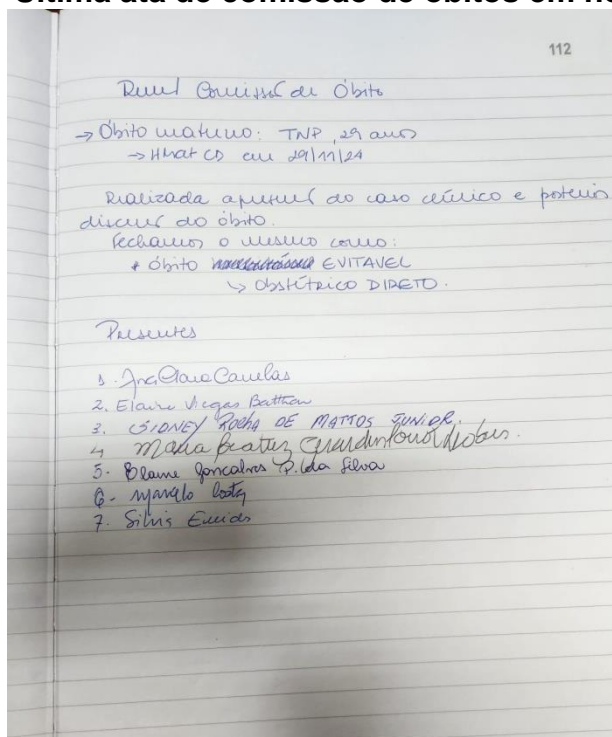 Última ata de comissão de óbitos em
112
Reunião Comissão de Óbito
→ Óbito materno: TNP, 29 anos
→ HMat CD em 29/11/24
Realizada apresentação do caso clínico e posterior
discussão do óbito.
Fechamos o mesmo como:
* óbito EVITAVEL
↳ Obstétrico DIRETO.
Presentes
1. Ana Clara Canelas
2. Elaine Viegas
3. SIDNEY ROCHA DE MATTOS JUNIOR.
4 Maria Beatriz
5. Elaine Goncalves P. da Silva
6. Marcelo Costa
7. Silvia